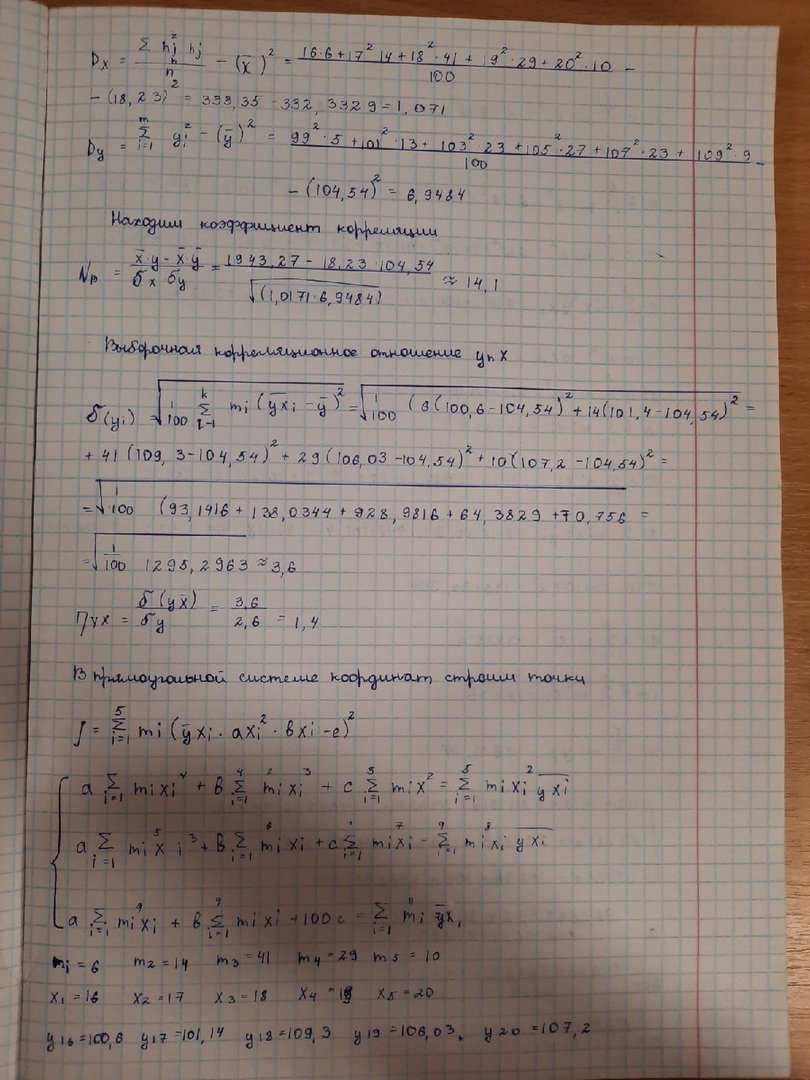 Dx = Σ nj² hj / n − (x̄)² = 16·6+17²·14+18²·41+19²·29+20²·10 / 100 −
− (18,23)² = 333,35 − 332,3329 = 1,071
Dy = Σ_{i=1}^{m} yi² − (ȳ)² = 99²·5+101²·13+103²·23+105²·27+107²·23+109²·9 / 100 −
− (104,54)² = 6,9484
Находим коэффициент корреляции
= x̄·y − x̄·ȳ / σx σy = 1943,27 − 18,23·104,54 / √(1,0171·6,9484) ≈ 14,1
Выборочная корреляционное отношение y n X
σ(yi) = √ 1/100 Σ^{k} mi (yxi − ȳ)² = √ 1/100 (6(100,6−104,54)² + 14(101,4−104,54)² =
+ 41(109,3−104,54)² + 29(106,03−104,54)² + 10(107,2−104,54)² =
= √ 1/100 (93,1416 + 138,0344 + 928,9816 + 64,3829 + 70,756 =
= √ 1/100 1295,2963 ≈ 3,6
ηyx = σ(yx̄) / σy = 3,6 / 2,6 = 1,4
В прямоугольной системе координат строим точки
∫ = Σ_{i=1}^{5} mi (ȳxi · axi² · bxi − c)²
a Σ_{i=1} mixi⁴ + b Σ_{i=1}^{4} mi²xi³ + c Σ_{i=1}^{5} mix² = Σ_{i=1}^{5} mixi² yxi
a Σ_{i=1} mi⁵xi³ + b Σ_{i=1} mi⁶xi + c Σ_{i=1} mi⁷xi − Σ_{i=1}^{9} mi⁸xi yxi
a Σ_{i=1} mi⁹xi + b Σ_{i=1}^{9} mixi + 100c = Σ_{i=1} mi ȳxi
mi = 6 m2 = 14 m3 = 41 m4 = 29 m5 = 10
x1 = 16 x2 = 17 x3 = 18 x4 = 19 x5 = 20
y16 = 100,6 y17 = 101,14 y18 = 109,3 y19 = 106,03. y20 = 107,2